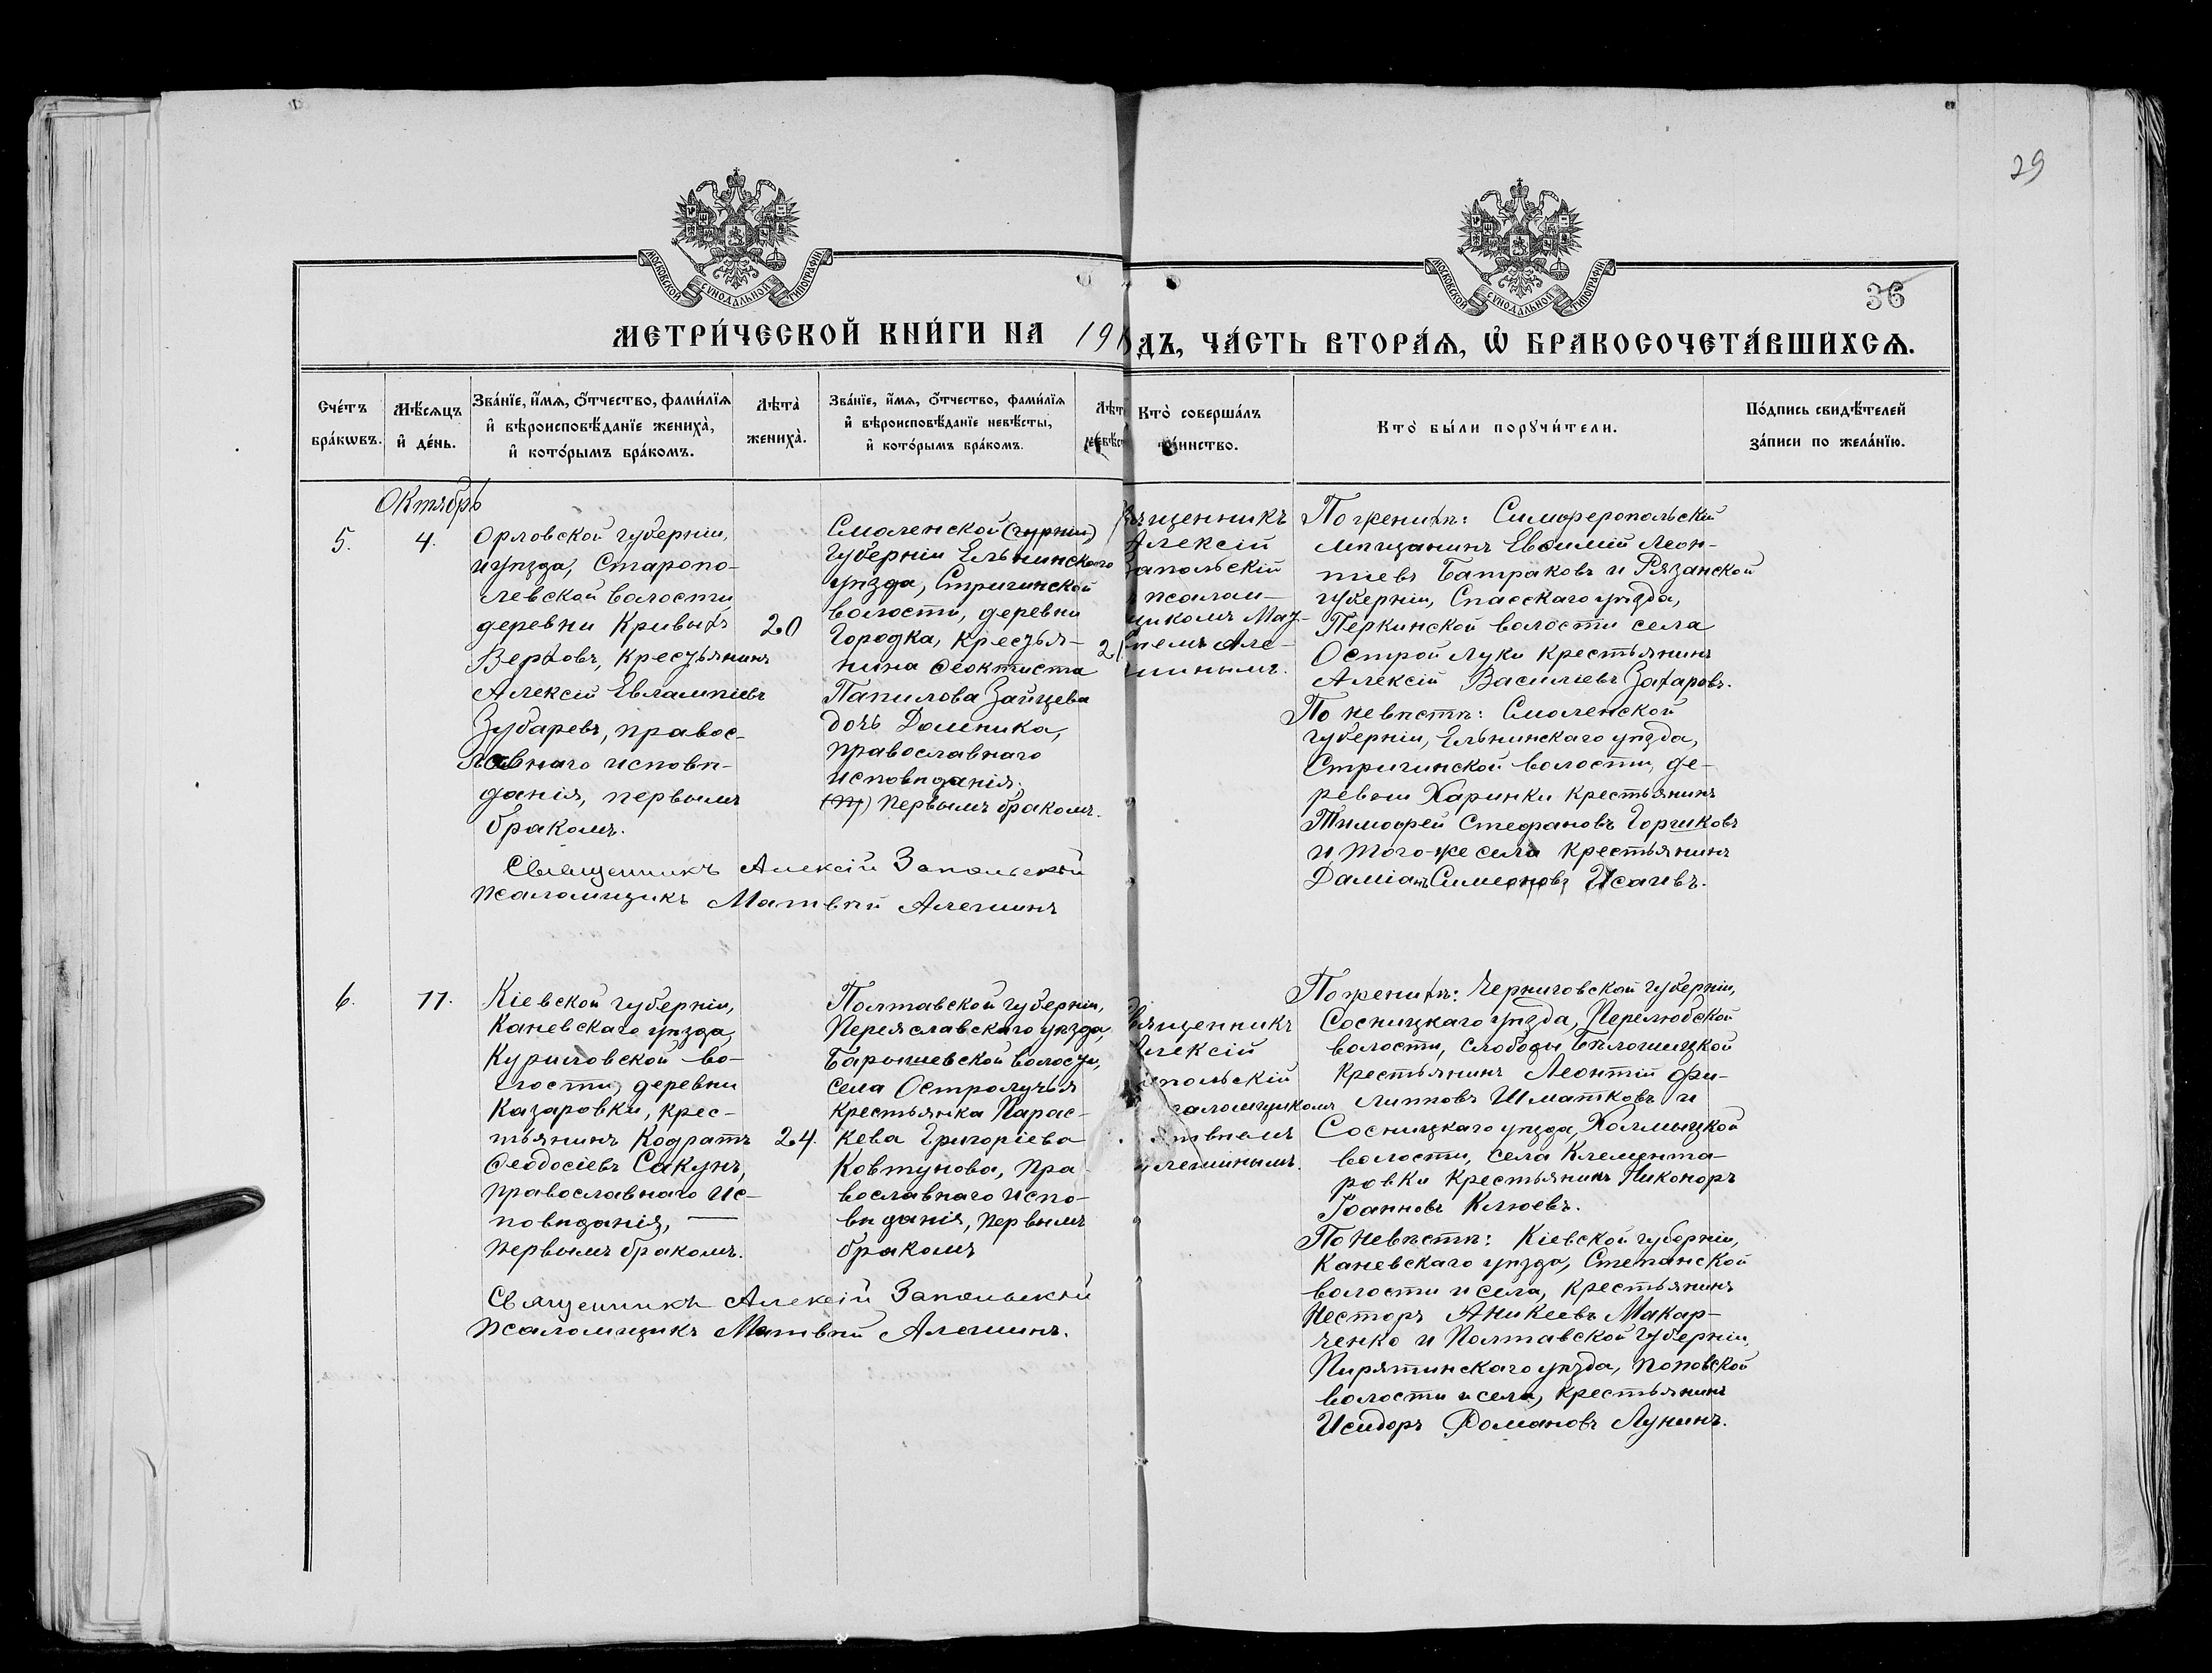 29
36
МОСКОВСКОЙ СѴНОДАЛЬНОЙ ТИПОГРАФІИ
МОСКОВСКОЙ СѴНОДАЛЬНОЙ ТИПОГРАФІИ
МЕТРИ́ЧЕСКОЙ КНИ́ГИ НА 191
ДЪ, ЧА́СТЬ ВТОРА́Ѧ, Ѽ БРАКОСОЧЕТА́ВШИХСѦ.
Сче́тъ
бра́кѡвъ.
Мѣ́сѧцъ
и҆ де́нь.
Зва́нїе, и҆́мѧ, ѻ҆́тчество, фами́лїѧ
и҆ вѣроисповѣ́данїе жениха̀,
и҆ кото́рымъ бра́комъ.
Лѣта̀
жениха̀.
Зва́нїе, и҆́мѧ, ѻ҆́тчество, фами́лїѧ
и҆ вѣроисповѣ́данїе невѣ́сты,
и҆ кото́рымъ бра́комъ.
Лѣт
невѣс
Кто̀ соверша́лъ
та́инство.
Кто̀ бы́ли порꙋчи́тели.
По́дпись свидѣ́телей
за́писи по жела́нїю.
Октябрь
5.
4.
Орловской губерніи,
и уѣзда, Старопо-
левской волости
деревни Кривыхъ
Верховъ, крестьянинъ
Алексій Евлампіевъ
Зубаревъ, правос-
лавнаго исповѣ-
данія, первымъ
бракомъ.
20
Смоленской
Губерніи Ельнинскаго
уѣзда, Стригинской
волости, деревни
Городка, крестья-
нина Ѳеоктиста
Папилова Зайцева
дочь Домника,
православнаго
исповѣданія,
первымъ бракомъ.
21
Священникъ
Алексій
Запольскій
псалом-
щикомъ Мат-
вѣемъ Але-
шинымъ.
По женихѣ: Симферопольскій
мѣщанинъ Евѳимій Леон-
тіевъ Батраковъ и Рязанской
губерніи, Спасскаго уѣзда,
Перкинской волости села
Острой Луки крестьянинъ
Алексій Василіевъ Захаровъ.
По невѣстѣ: Смоленской
губерніи, Ельнинскаго уѣзда,
Стригинской волости, де-
ревни Харинки крестьянинъ
Тимоѳей Стефановъ Горшковъ
и того-же села крестьянинъ
Даміанъ Симеоновъ Исаивъ.
Священникъ Алексій Запольскій
Псаломщикъ Матвѣй Алешинъ
6.
11.
Кіевской губерніи,
Каневскаго уѣзда,
Куриловской во-
лости, деревни
Казаровки, крес-
тьянинъ Кодратъ
Ѳеодосіевъ Сакунъ,
православнаго ис-
повѣданія, —
первымъ бракомъ.
24.
Полтавской губерніи,
Переяславскаго уѣзда,
Барышевской волости,
села Остролучья
крестьянка Парас-
кева Григоріева
Ковтунова, пра-
вославнаго испо-
вѣданія, первымъ
бракомъ
Священникъ
Алексій
Запольскій
псаломщикомъ
Матвѣемъ
Алешинымъ.
По женихѣ: Черниговской губерніи,
Сосницкаго уѣзда, Перелюбской
волости, слободы Бѣлошицкой
крестьянинъ Леонтій Фи-
липповъ Шматковъ и
Сосницкаго уѣзда, Холмыцкой
волости, села Клемента-
ровки крестьянинъ Никоноръ
Іоанновъ Клюевъ.
По невѣстѣ: Кіевской губерніи,
Каневскаго уѣзда, Степанской
волости и села, крестьянинъ
Несторъ Аникеевъ Макар-
ченко и Полтавской губерніи,
Пирятинскаго уѣзда, поповской
волости и села, крестьянинъ
Исидоръ Романовъ Лунинъ.
Священникъ Алексій Запольскій
Псаломщикъ Матвѣй Алешинъ.